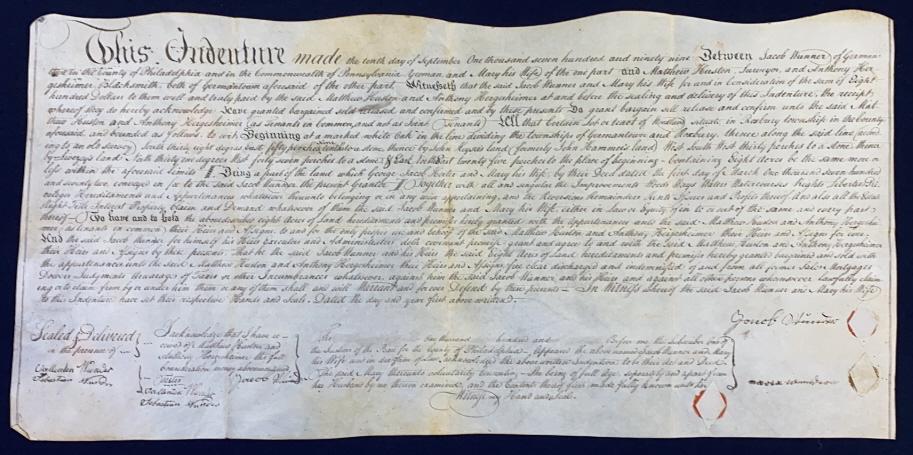 This Indenture made the tenth day of September One thousand seven hundred and ninety nine Between Jacob Wunner of German-
town in the County of Philadelphia and in the Commonwealth of Pennsylvania Yeoman and Mary his Wife of the one part and Matthew Huston Surveyor, and Anthony Her-
gesheimer Blacksmith, both of Germantown aforesaid of the other part Witnesseth that the said Jacob Wunner and Mary his Wife for and in Consideration of the Sum of Eight
hundred Dollars to them well and truly paid by the said Matthew Huston and Anthony Hergesheimer at and before the sealing and delivery of this Indenture, the receipt
whereof they do hereby acknowledge Have granted bargained sold released and confirmed and by these presents Do grant bargain sell release and confirm unto the said Mat-
thew Huston and Anthony Hergesheimer (as tenants in Common, and not as Joint Tenants) All that Certain Lot or tract of Woodland situate in Roxbury township in the County
aforesaid, and bounded as follows, to wit Beginning at a marked white Oak in the line dividing the townships of Germantown and Roxbury thence along the said line
to an old survey South thirty eight degrees East fifty perches to a stone, thence by John Land (formerly John Land) West South West thirty perches to a stone thence
by Land North thirty one degrees West forty seven perches to a stone & East twenty five perches to the place of Beginning - Containing Eight Acres be the same more or
less within the aforesaid limits Being a part of the land which George Jacob and Mary his Wife, by their Deed dated the first day of March One thousand seven hundred
and seventy two, conveyed in fee to the said Jacob Wunner the present Grantor Together with all and singular the Improvements Woods Ways Waters Watercourses Rights Liberties Pri-
vileges Hereditaments and Appurtenances whatsoever thereunto belonging or in any wise appertaining, and the Reversions Remainders Rents Issues and Profits thereof And also all the Estate
Right Title Interest Property Claim and Demand whatsoever of them the said Jacob Wunner and Mary his Wife either in Law or Equity of in to or out of the same and every part
thereof To have and to hold the abovedescribed eight Acres of Land hereditaments and premises hereby granted with the appurtenances unto the said Matthew Huston and Anthony Hergeshei-
mer as tenants in common their Heirs and Assigns to and for the only proper use and behoof of the said Matthew Huston and Anthony Hergesheimer their Heirs and Assigns for ever
And the said Jacob Wunner for himself his Heirs Executors and Administrators doth covenant promise grant and agree to and with the said Matthew Huston and Anthony Hergesheimer
their Heirs and Assigns by these presents That he the said Jacob Wunner and his Heirs the said Eight Acres of Land hereditaments and premises hereby granted bargained and sold with
the appurtenances unto the said Matthew Huston and Anthony Hergesheimer their Heirs and Assigns free clear discharged and indemnified of and from all former Sales Mortgages
Dowers Judgments Arrearages of Taxes or other Incumbrances whatsoever, against him the said Jacob Wunner and his Heirs and against all other persons whomsoever lawfully claim-
ing or to claim from by in under him them or any of them Shall and will Warrant and forever Defend by these presents - In Witness whereof the said Jacob Wunner and Mary his Wife
to this Indenture have set their respective Hands and Seals. Dated the day and year first above written
Jacob Wunner
Sealed & Delivered
in the presence of
Sebastian
I acknowledge that I have re-
ceived of Matthew Huston and
Anthony Hergesheimer the full
consideration money abovementioned
Witness
Jacob
Sebastian
The one thousand hundred and Before me the Subscriber One of
the Justices of the Peace for the County of Philadelphia Appeared the abovenamed Jacob Wunner and Mary
his Wife and in due form of Law acknowledged the above written Indenture to be their Act and Deed
The said Mary thereunto voluntarily consenting She being of full Age separately and apart from
her Husband by me thereon examined, and the Contents thereof first made fully known unto her
Witness my Hand and Seal